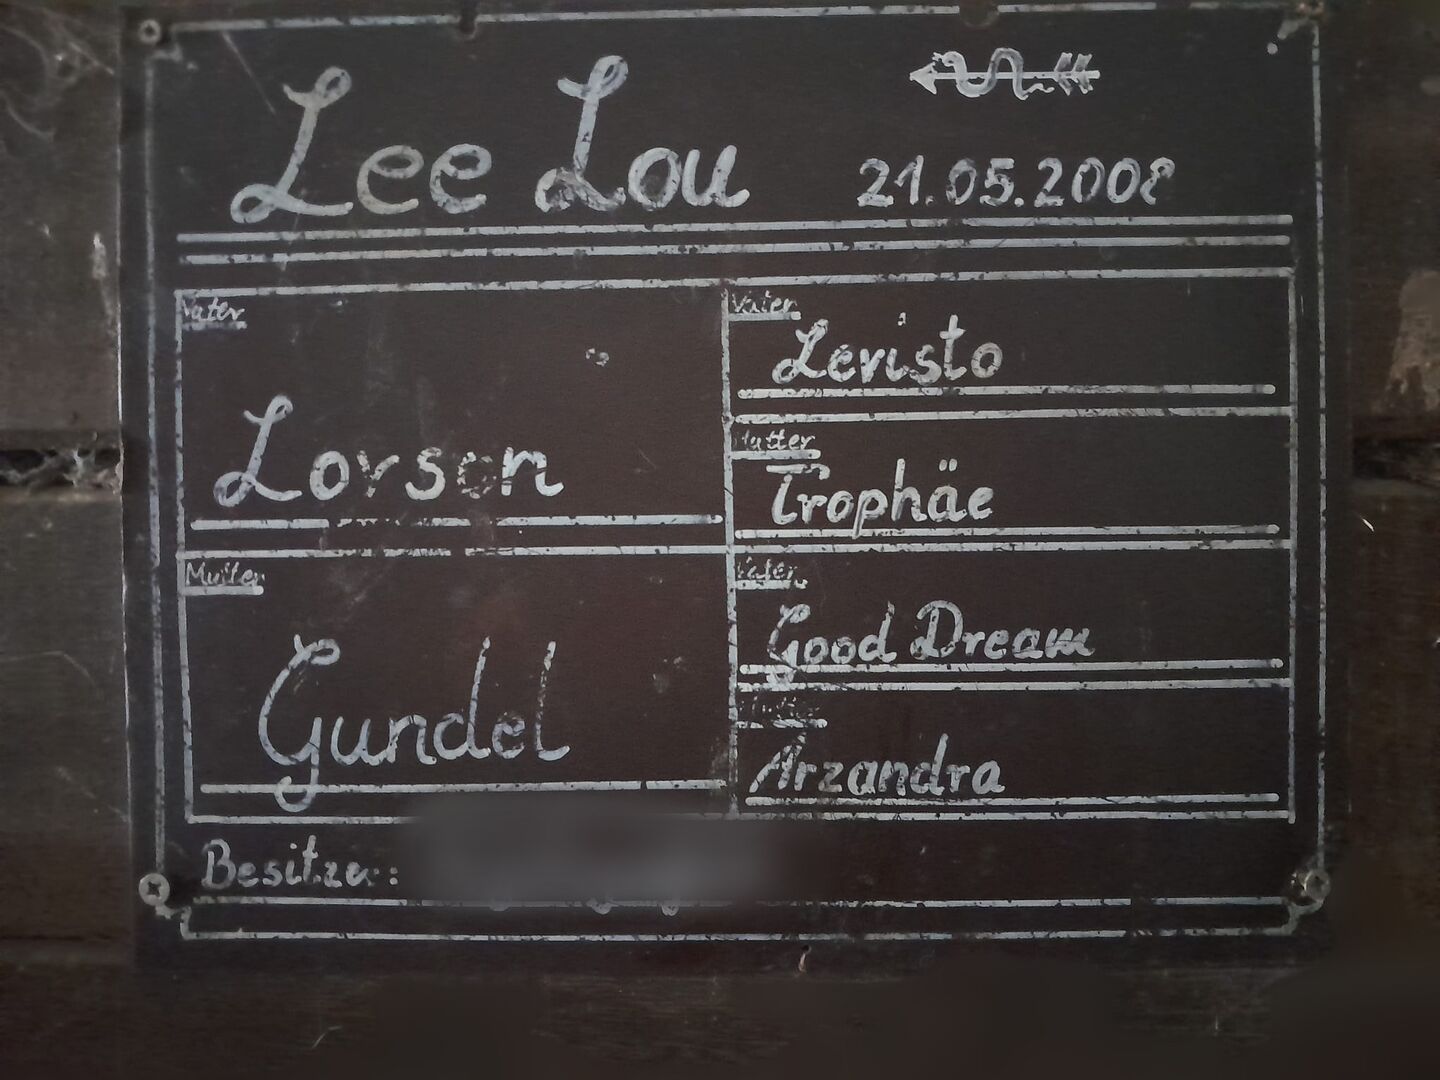 Lee Lou
21.05.2008
Vater
Lorson
Mutter
Gundel
Vater
Levisto
Mutter
Trophäe
Vater
Good Dream
Mutter
Arzandra
Besitzer: